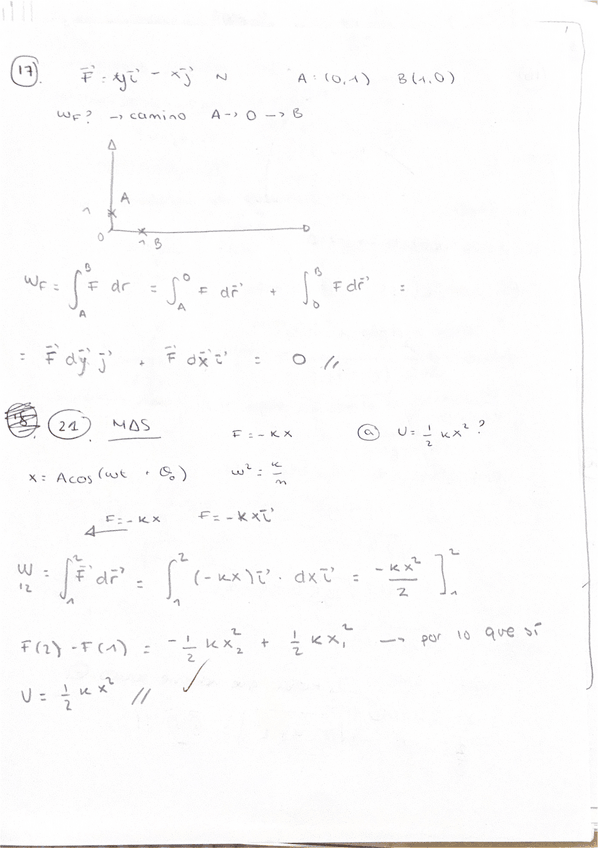 17. F⃗ = yi⃗ - xj⃗ N A = (0,1) B(1,0)
WF? → camino A → O → B
A
1
O 1 B
WF = ∫_A^B F⃗ dr = ∫_A^O F dr⃗ + ∫_O^B F dr⃗ =
= F⃗ dy⃗ j⃗ + F⃗ dx⃗ i⃗ = 0 //
21. MAS F = -kx a U = 1/2 kx² ?
x = A cos(wt + θ₀) w² = k/m
F = -kx F = -kx i⃗
W₁₂ = ∫_1^2 F⃗ dr⃗ = ∫_1^2 (-kx) i⃗ · dx i⃗ = -kx²/2 ]_1^2
F(2) - F(1) = -1/2 kx₂² + 1/2 kx₁² → por lo que sí
U = 1/2 kx² // ✓